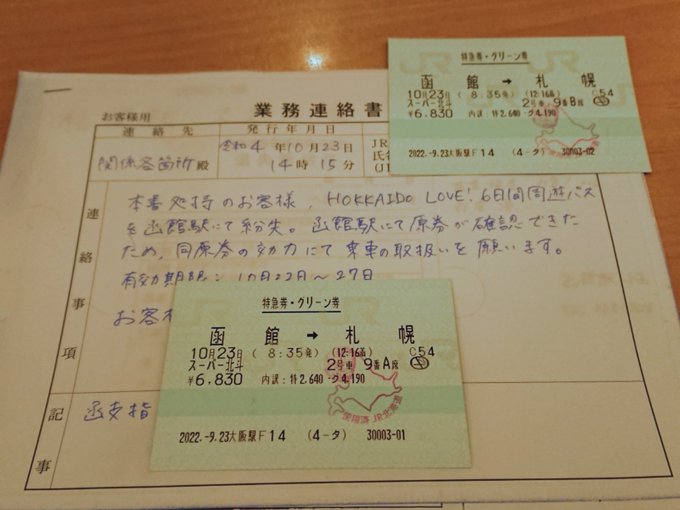 お客様用
業務連絡書
連絡先
発行年月日
関係各箇所殿
令和4年10月23日
14時15分
JR
氏
(J
連絡事項
本書処持のお客様、HOKKAIDO LOVE! 6日間周遊パス
を函館駅にて紛失。函館駅にて原券が確認できた
ため、同原券の効力にて乗車の取扱いを願います。
有効期限:10月22日〜27日
お客
記事
函支指
特急券・グリーン券
函館 → 札幌
10月23日 ( 8:35発) (12:16着) C54
スーパー北斗 2号車 9番B席
¥6,830 内訳:特2,640・グ4,190
2022.-9.23大阪駅F14 (4-タ) 30003-02
特急券・グリーン券
函館 → 札幌
10月23日 ( 8:35発) (12:16着) C54
スーパー北斗 2号車 9番A席
¥6,830 内訳:特2,640・グ4,190
使用済 JR北海道
2022.-9.23大阪駅F14 (4-タ) 30003-01